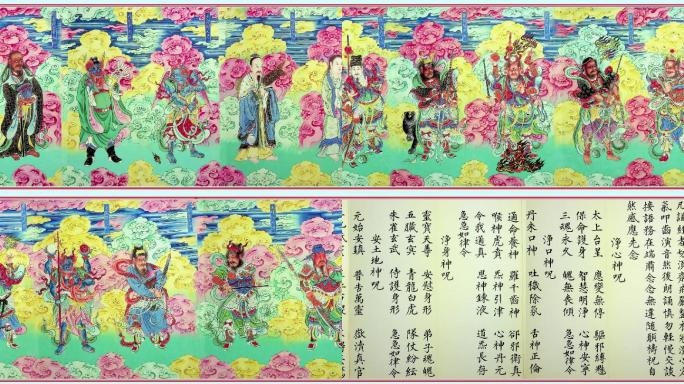 氣叩齒演音然後朗誦慎勿輕慢交談
接語務在端肅念念無違隨願禱祝自
然感應先念
淨心神呪
太上台星 應變無停 驅邪縛魅
保命護身 智慧明淨 心神安寧
三魂永久 魄無喪傾 急急如律令
淨口神呪
丹朱口神 吐穢除氛 舌神正倫
通命養神 羅千齒神 卻邪衛真
喉神虎賁 炁神引津 心神丹元
令我通真 思神鍊液 道炁長存
急急如律令
淨身神呪
靈寶天尊 安慰身形 弟子魂魄
五臟玄冥 青龍白虎 隊仗紛紜
朱雀玄武 侍護身形 急急如律令
安土地神呪
元始安鎮 普告萬靈 嶽瀆真官